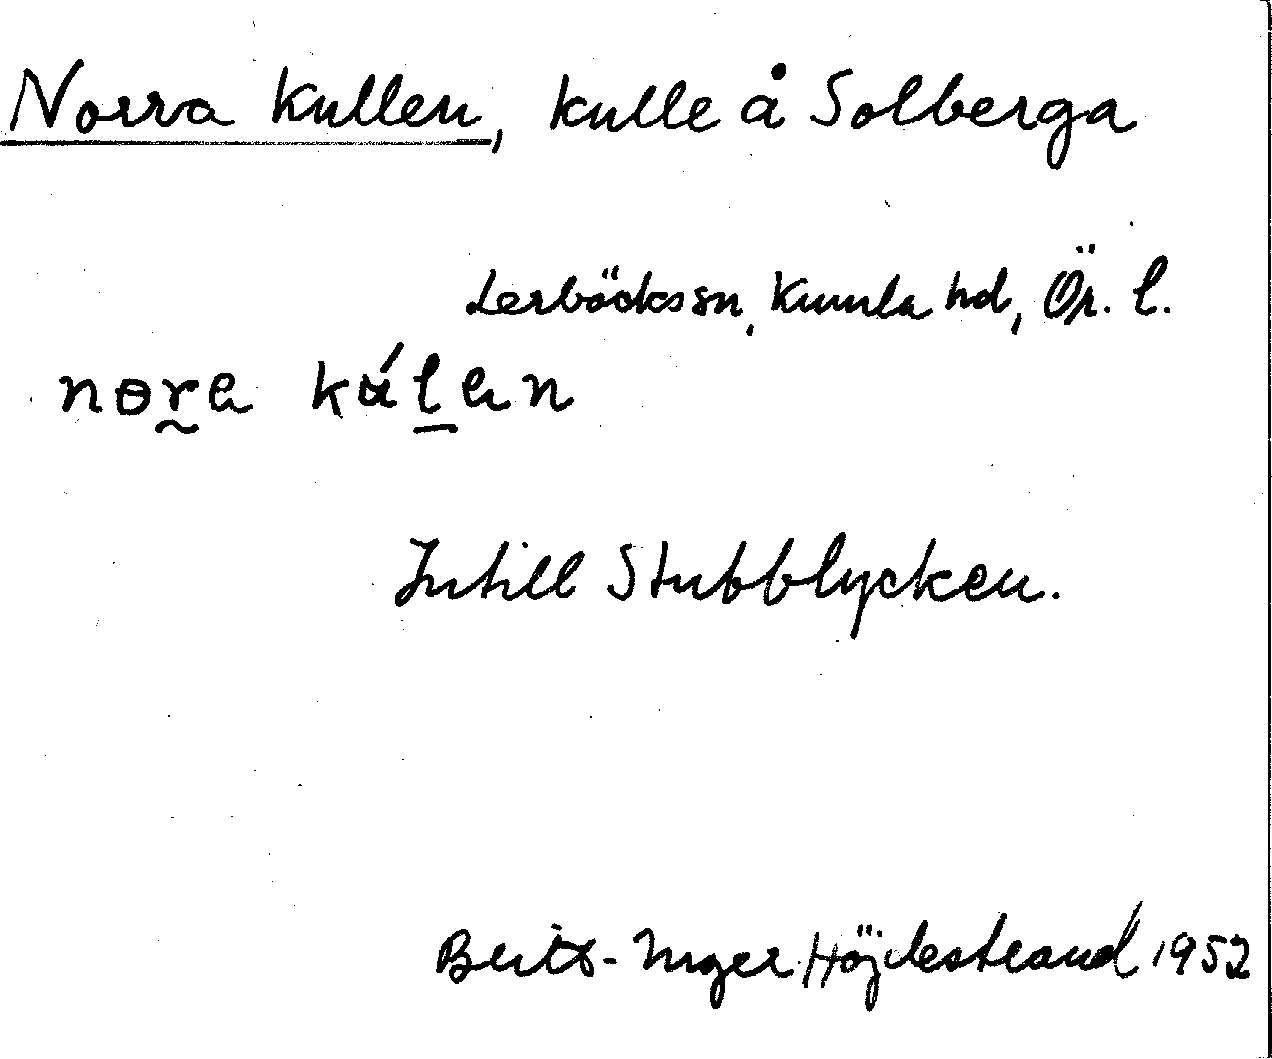 Norra Kullen, kulle å Solberga
Lerbäcks sn, Kumla hd, Ör. l.
Intill Stubblycken.
Britt-Inger Höjdestrand 1952